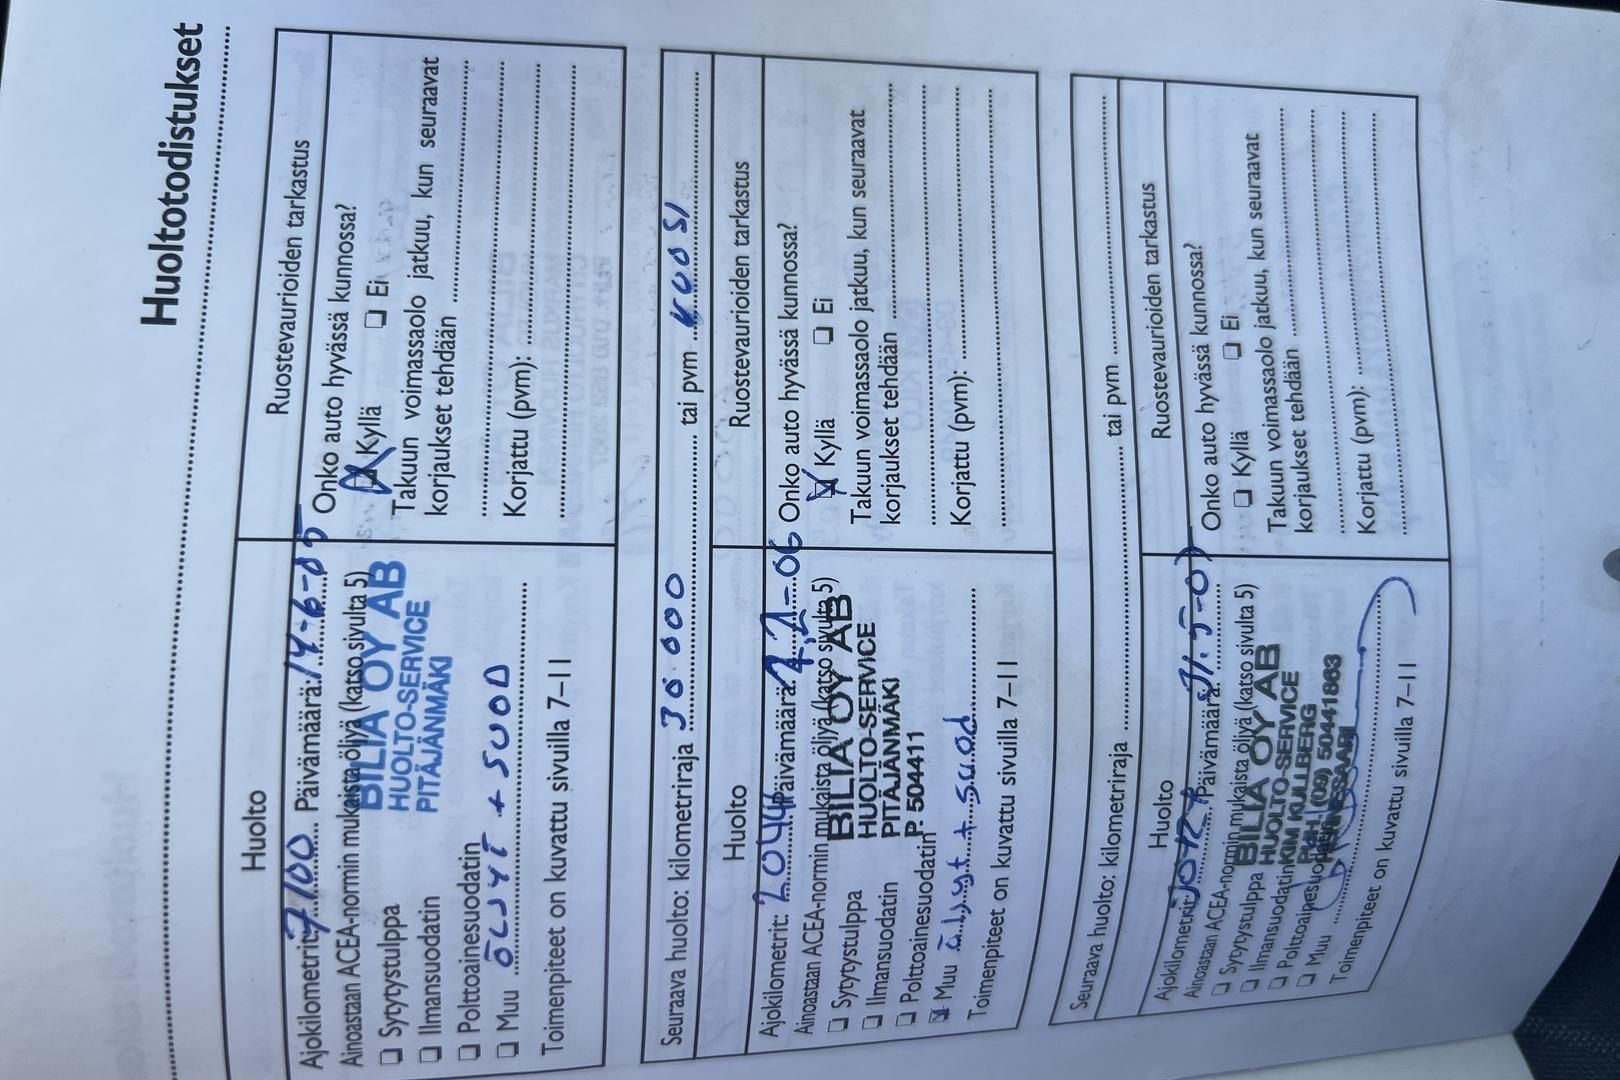 Huoltotodistukset
Huolto
Ajokilometrit: 7100 Päivämäärä: 14-6-05
Ainoastaan ACEA-normin mukaista öljyä (katso sivulta 5)
BILIA OY AB
❏ Sytytystulppa
HUOLTO-SERVICE
❏ Ilmansuodatin
PITÄJÄNMÄKI
❏ Polttoainesuodatin
❏ Muu ÖLJYT + SUOD
Toimenpiteet on kuvattu sivuilla 7–11
Ruostevaurioiden tarkastus
Onko auto hyvässä kunnossa?
Kyllä ❏ Ei
Takuun voimassaolo jatkuu, kun seuraavat
korjaukset tehdään
Korjattu (pvm):
Seuraava huolto: kilometriraja 30 000 tai pvm VUOSI
Huolto
Ajokilometrit: Päivämäärä:
Ainoastaan ACEA-normin mukaista öljyä (katso sivulta 5)
BILIA OY AB
❏ Sytytystulppa
HUOLTO-SERVICE
❏ Ilmansuodatin
PITÄJÄNMÄKI
❏ Polttoainesuodatin
P. 504411
Muu öljyt + suod
Toimenpiteet on kuvattu sivuilla 7–11
Ruostevaurioiden tarkastus
Onko auto hyvässä kunnossa?
Kyllä ❏ Ei
Takuun voimassaolo jatkuu, kun seuraavat
korjaukset tehdään
Korjattu (pvm):
Seuraava huolto: kilometriraja tai pvm
Huolto
Ajokilometrit: Päivämäärä:
Ainoastaan ACEA-normin mukaista öljyä (katso sivulta 5)
BILIA OY AB
❏ Sytytystulppa
HUOLTO-SERVICE
❏ Ilmansuodatin
KIM KULLBERG
❏ Polttoainesuodatin
PUH. (09) 50441863
❏ Muu
Toimenpiteet on kuvattu sivuilla 7–11
Ruostevaurioiden tarkastus
Onko auto hyvässä kunnossa?
❏ Kyllä ❏ Ei
Takuun voimassaolo jatkuu, kun seuraavat
korjaukset tehdään
Korjattu (pvm):